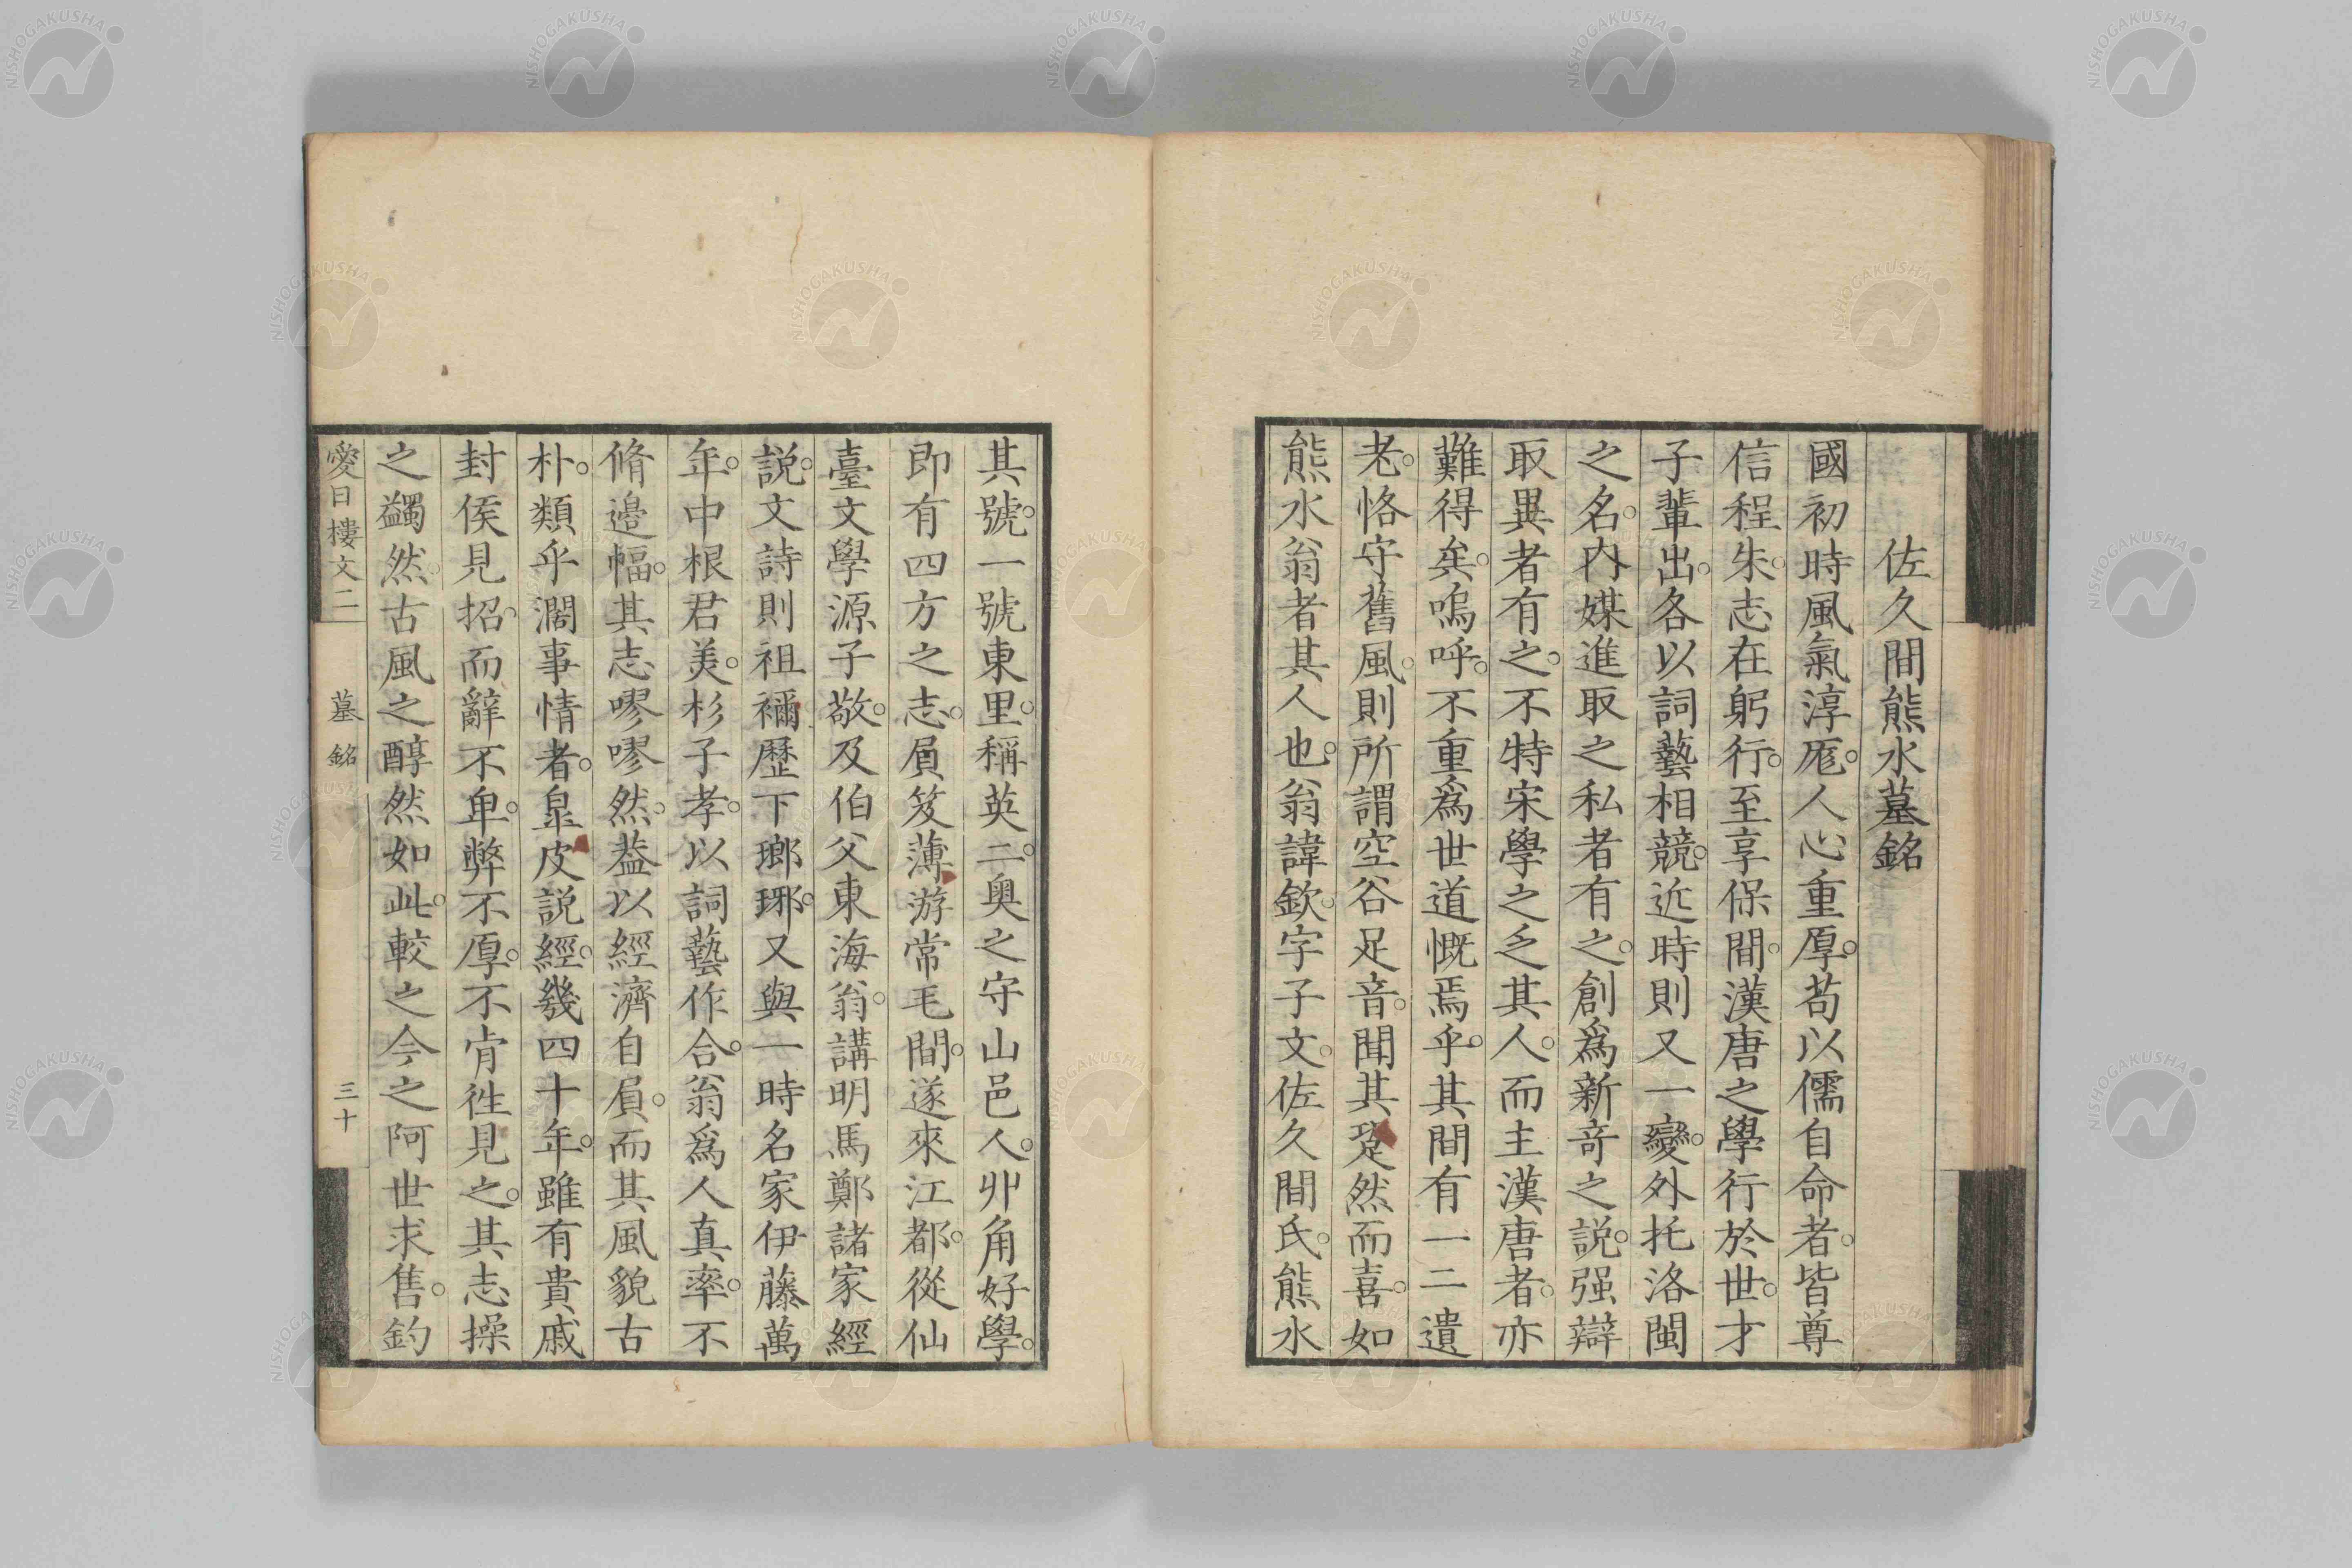 佐久間熊水墓銘
國初時風氣淳厖。人心重厚。苟以儒自命者。皆尊
信程朱。志在躬行。至享保間。漢唐之學行於世。才
子輩出。各以詞藝相競。近時則又一變。外托洛閩
之名。内媒進取之私者有之。創爲新奇之說。强辯
取異者有之。不特宋學之乏其人。而主漢唐者。亦
難得矣。嗚呼。不重爲世道慨焉乎。其間有一二遺
老。恪守舊風。則所謂空谷足音。聞其跫然而喜。如
熊水翁者其人也。翁諱欽。字子文。佐久間氏。熊水
其號。一號東里。稱英二。奥之守山邑人。丱角好學。
即有四方之志。負笈薄游常毛間。遂來江都。從仙
臺文學源子敬。及伯父東海翁。講明馬鄭諸家經
說。文詩則祖禰歷下瑯琊。又與一時名家伊藤萬
年。中根君美。杉子孝。以詞藝作合。翁爲人真率。不
脩邉幅。其志嘐嘐然。葢以經濟自負。而其風貌古
朴。類乎濶事情者。皐皮說經。幾四十年。雖有貴戚
封侯見招。而辭不卑。弊不厚。不肯徃見之。其志操
之蠲然。古風之醇然如此。較之今之阿世求售。釣
愛日樓文二
墓銘
三十
NISHOGAKUSHA